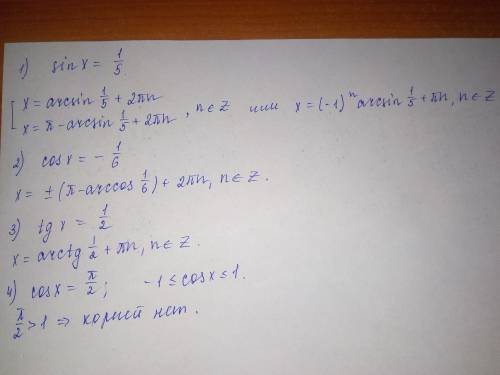 1) sin x = 1/5
[ x = arcsin 1/5 + 2πn
x = π - arcsin 1/5 + 2πn , n ∈ Z или x = (-1)ⁿ arcsin 1/5 + πn, n ∈ Z
2) cos x = - 1/6
x = ± (π - arccos 1/6) + 2πn, n ∈ Z.
3) tg x = 1/2
x = arctg 1/2 + πn, n ∈ Z.
4) cos x = π/2 ; -1 ≤ cos x ≤ 1.
π/2 > 1 ⇒ корней нет.